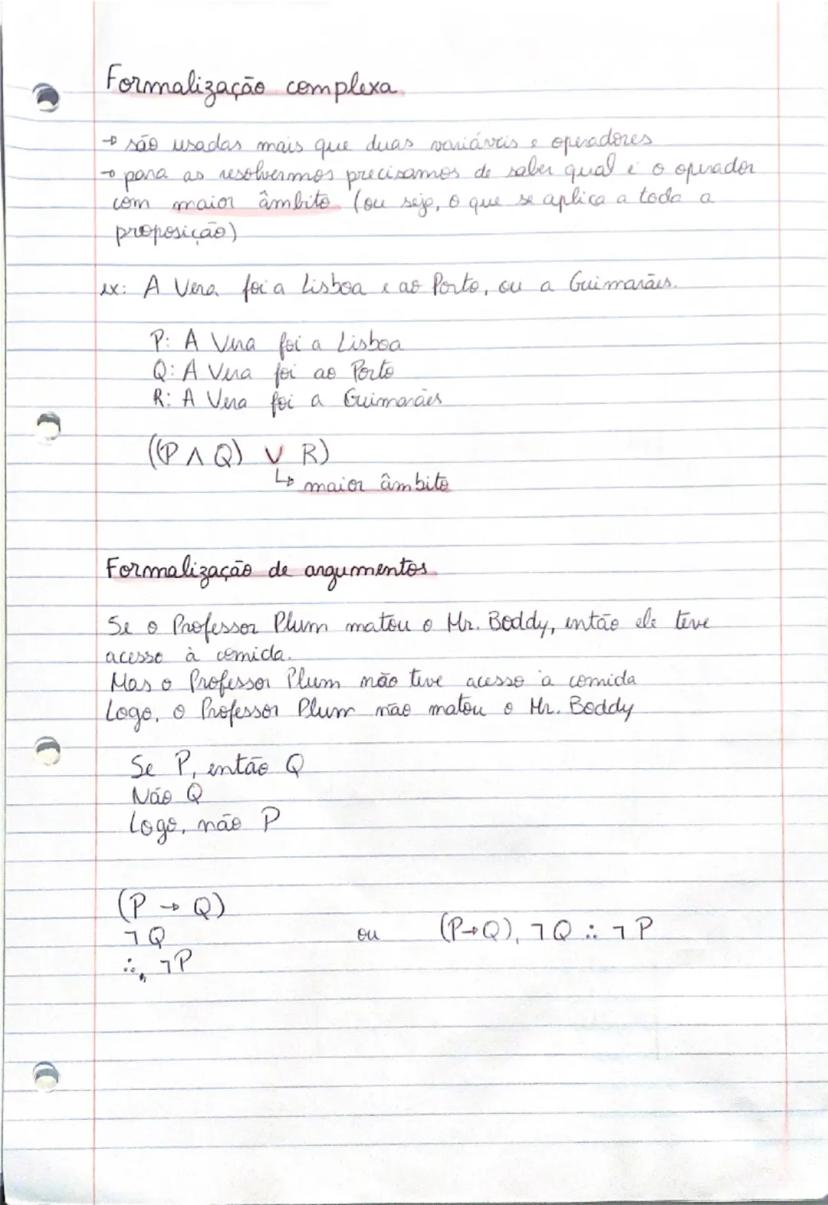 Formalização complexa
→ são usadas mais que duas variáveis e operadores
→ para as resolvermos precisamos de saber qual é o operador
com maior âmbito (ou seja, o que se aplica a toda a
proposição)
ex: A Vera foi a Lisboa e ao Porto, ou a Guimarães.
P: A Vera foi a Lisboa
Q: A Vera foi ao Porto
R: A Vera foi a Guimarães
((P ∧ Q) ∨ R)
↳ maior âmbito
Formalização de argumentos
Se o Professor Plum matou o Mr. Boddy, então ele teve
acesso à comida.
Mas o Professor Plum não teve acesso à comida
Logo, o Professor Plum não matou o Mr. Boddy
Se P, então Q
Não Q
Logo, não P
(P → Q)
¬Q ou (P→Q), ¬Q ∴ ¬P
∴, ¬P